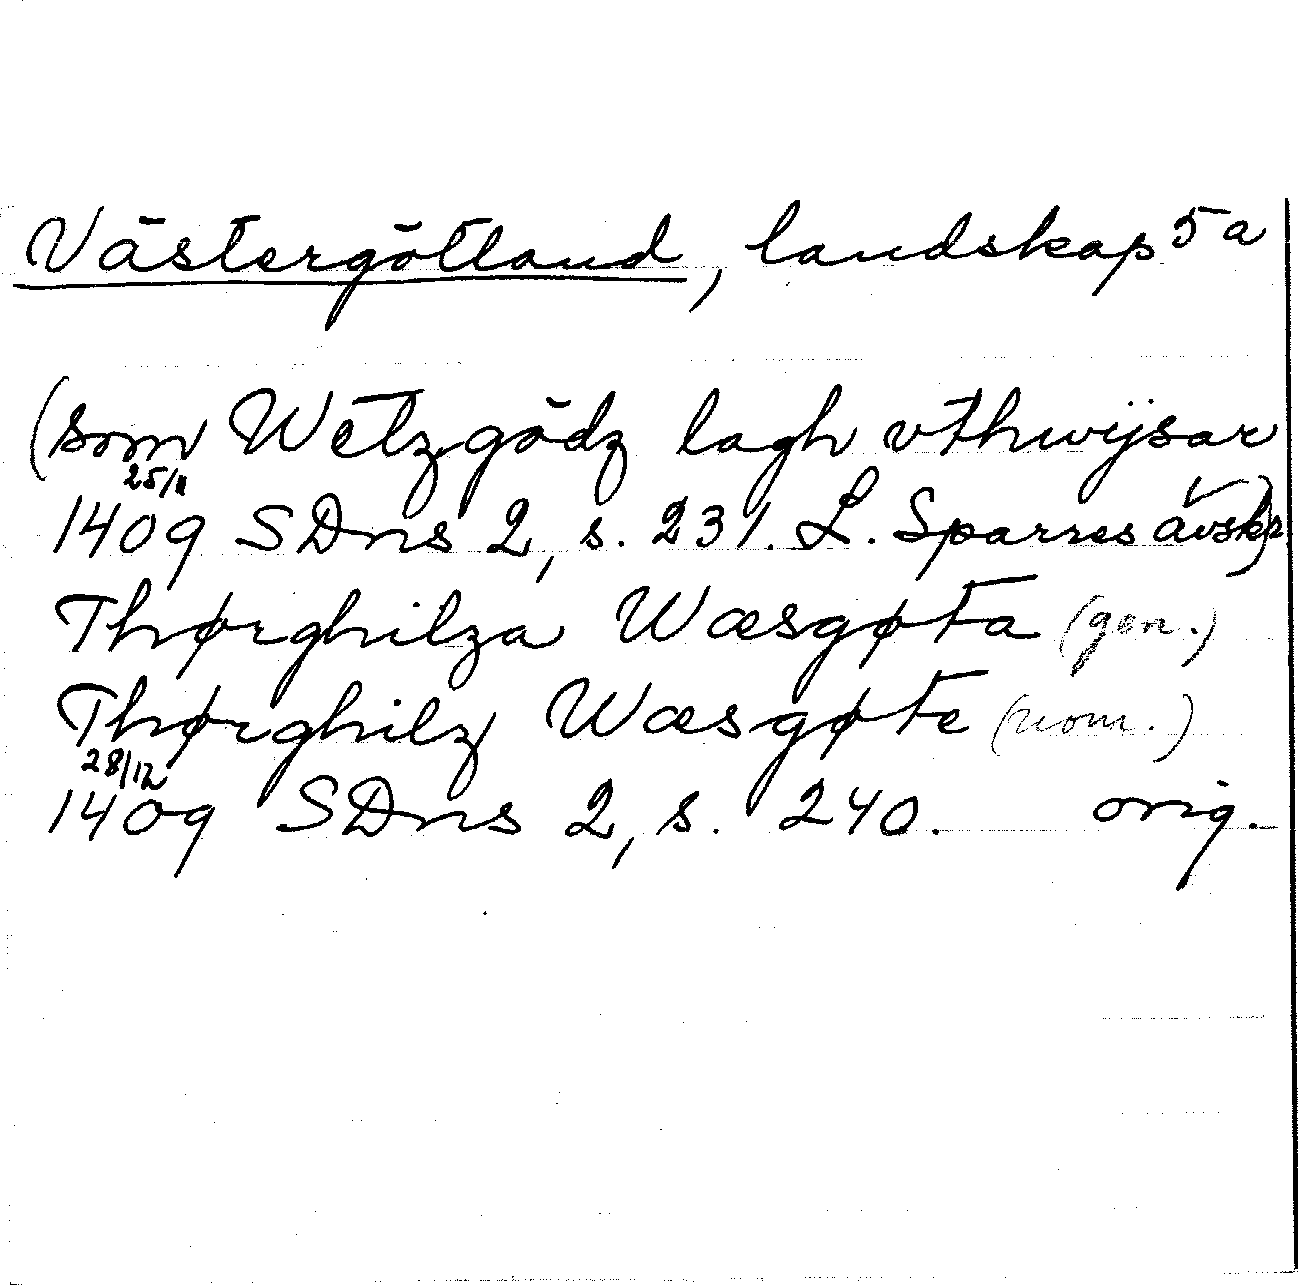 Västergötland, landskap 5a
(som Wetzgödz lagh vthwijsar
25/11
1409 SDns 2, s. 231. L. Sparres avskr)
Thørghilza Wæsgøta (gen.)
Thørghilz Wæsgøte (nom.)
28/12
1409 SDns 2, s. 240. orig.